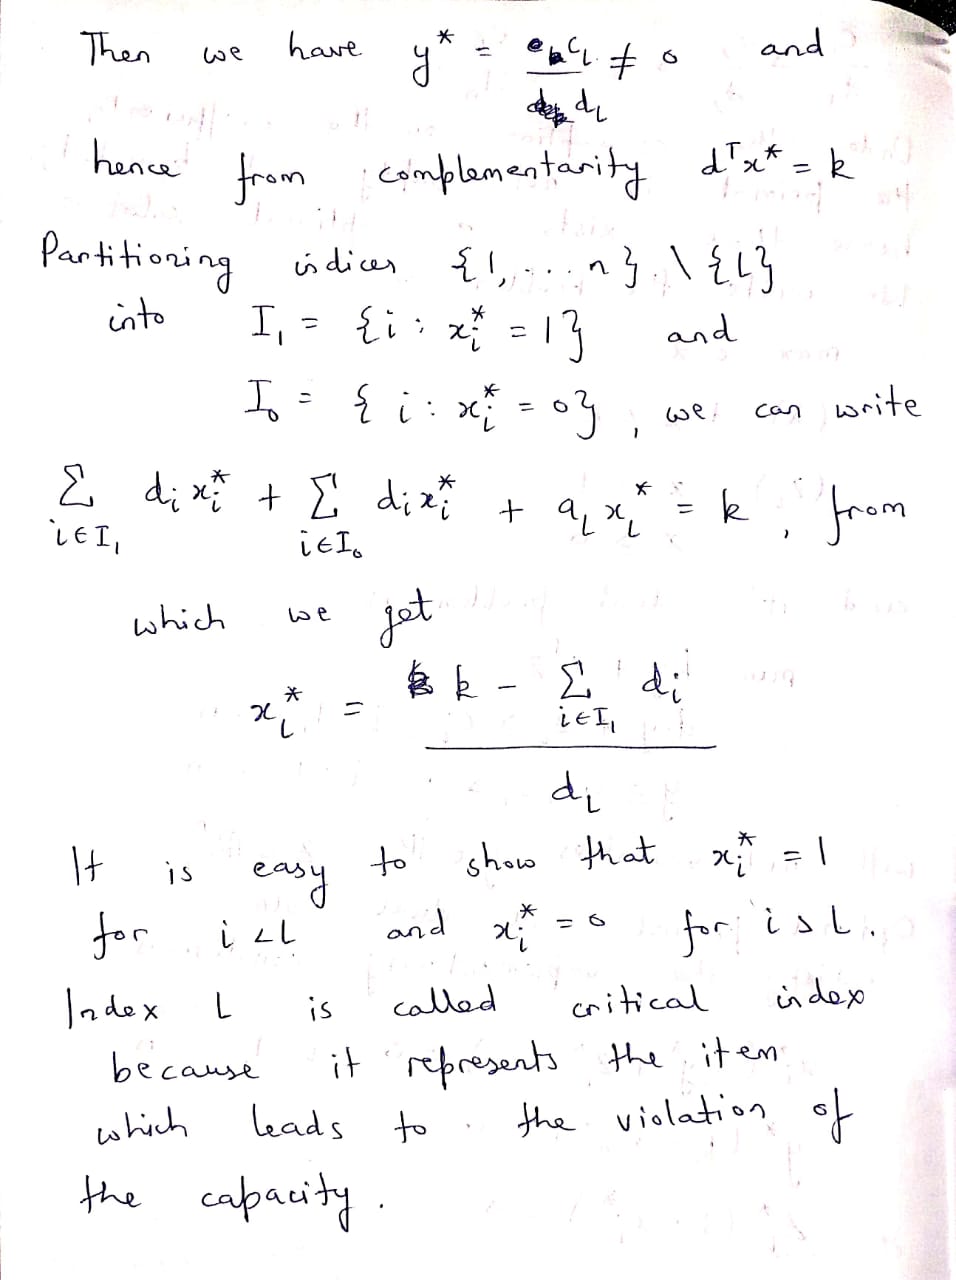 Then we have y* = c_L / d_L ≠ 0 and
hence from complementarity dᵀx* = k
Partitioning indices {1, ... n} \ {L}
into I₁ = {i : xᵢ* = 1} and
I₀ = {i : xᵢ* = 0}, we can write
Σ_{i∈I₁} dᵢxᵢ* + Σ_{i∈I₀} dᵢxᵢ* + a_L x_L* = k, from
which we get
x_L* = (k - Σ_{i∈I₁} dᵢ) / d_L
It is easy to show that xᵢ* = 1
for i < L and xᵢ* = 0 for i > L.
Index L is called critical index
because it represents the item
which leads to the violation of
the capacity.